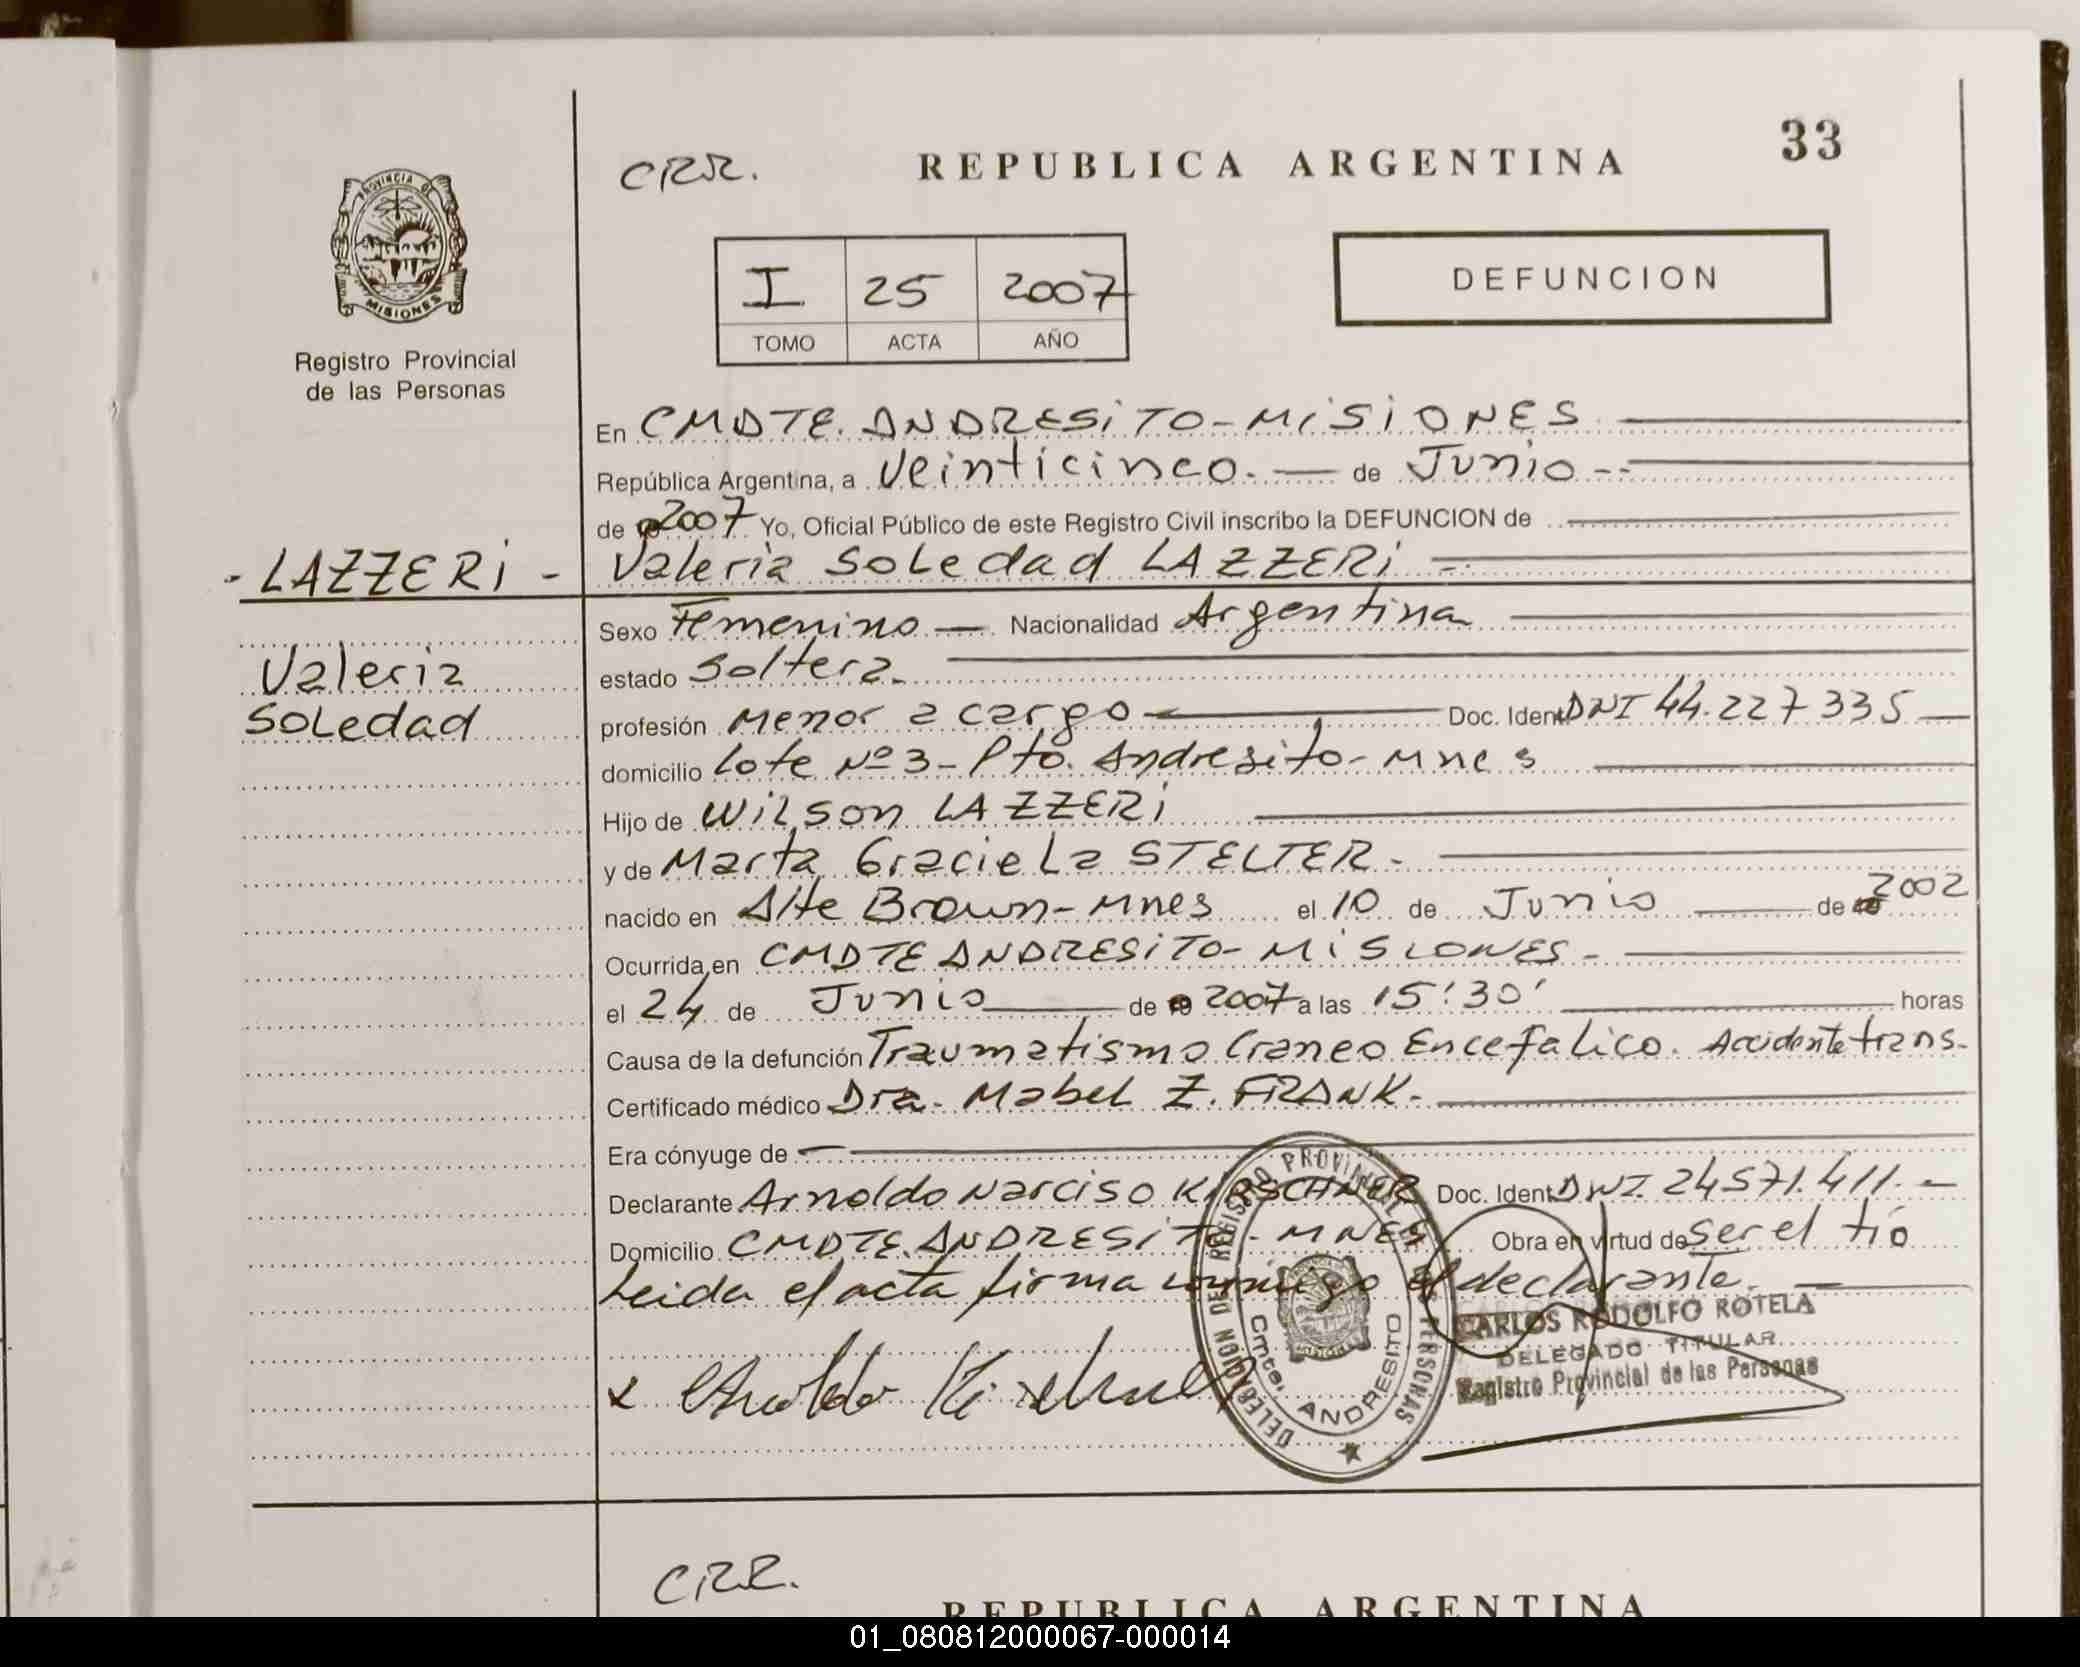 33
CRR. REPUBLICA ARGENTINA
PROVINCIA DE
MISIONES
Registro Provincial
de las Personas
I 25 2007
TOMO ACTA AÑO
DEFUNCION
En CMDTE. ANDRESiTO-MiSiONES
República Argentina, a Veinticinco. de Junio
de 2007 Yo, Oficial Público de este Registro Civil inscribo la DEFUNCION de
- LAZZERi - Valeria SoLedad LAZZERi
Sexo Femenino Nacionalidad Argentina
Valeria
SoLedad
estado Soltera.
profesión Menor a cargo Doc. Ident. DNI 44.227335
domicilio Lote Nº 3 - Pto. Andresito - Mnes
Hijo de WiLson LAZZERi
y de Marta GracieLa STELTER.
nacido en Alte Brown - Mnes el 10 de Junio de 2002
Ocurrida en CMDTE ANDRESiTO - MiSIONES -
el 24 de Junio de 2007 a las 15:30' horas
Causa de la defunción Traumatismo Craneo Encefalico. Accidente trans.
Certificado médico Dra. MabeL Z. FRANK.
Era cónyuge de
Declarante Arnoldo Narciso KIRSCHNER Doc. Ident. DNI. 24571.411.
Domicilio CMDTE. ANDRESiTO - MNES Obra en virtud de Ser el tío
Leida el acta firma conmigo el declarante.
DELEGACION DEL REGISTRO PROVINCIAL DE LAS PERSONAS
Cmte. ANDRESITO
CARLOS RODOLFO ROTELA
DELEGADO TITULAR
Registro Provincial de las Personas
x Arnoldo Kirschner
CRR.
REPUBLICA ARGENTINA
01_080812000067-000014